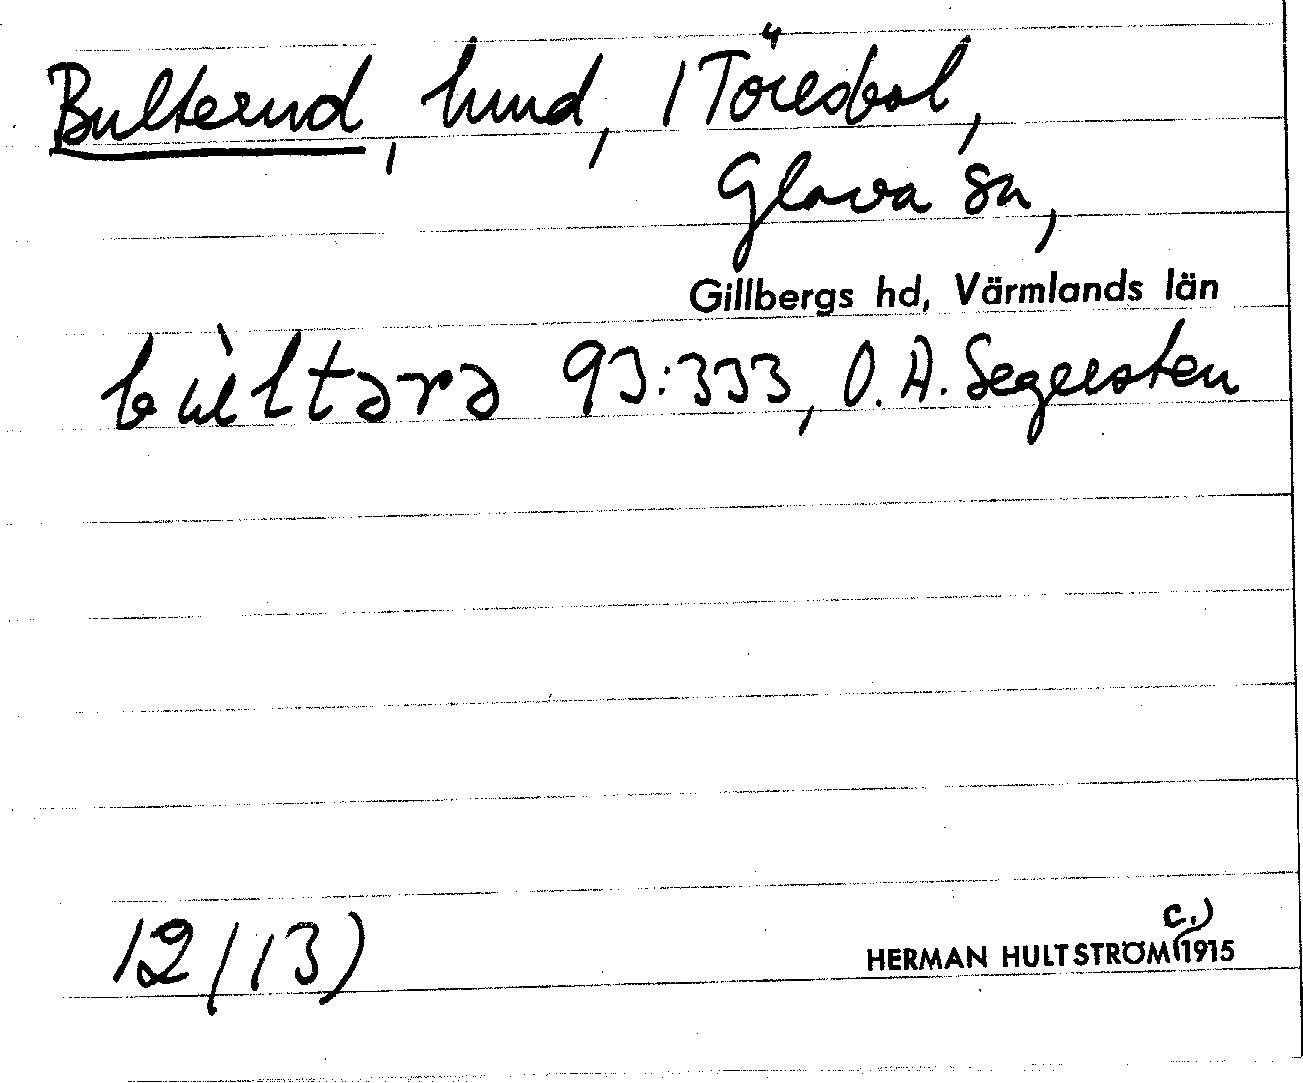 Bulterud, hmd, i Töresbol,
Glava sn,
Gillbergs hd, Värmlands län
bùltərə 93:333, O. A. Segersten
12/13)
HERMAN HULTSTRÖM (c.) 1915